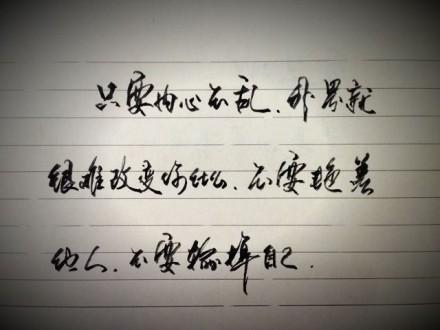 只要内心不乱，外界就
很难改变你什么，不要艳羡
他人，不要输掉自己．